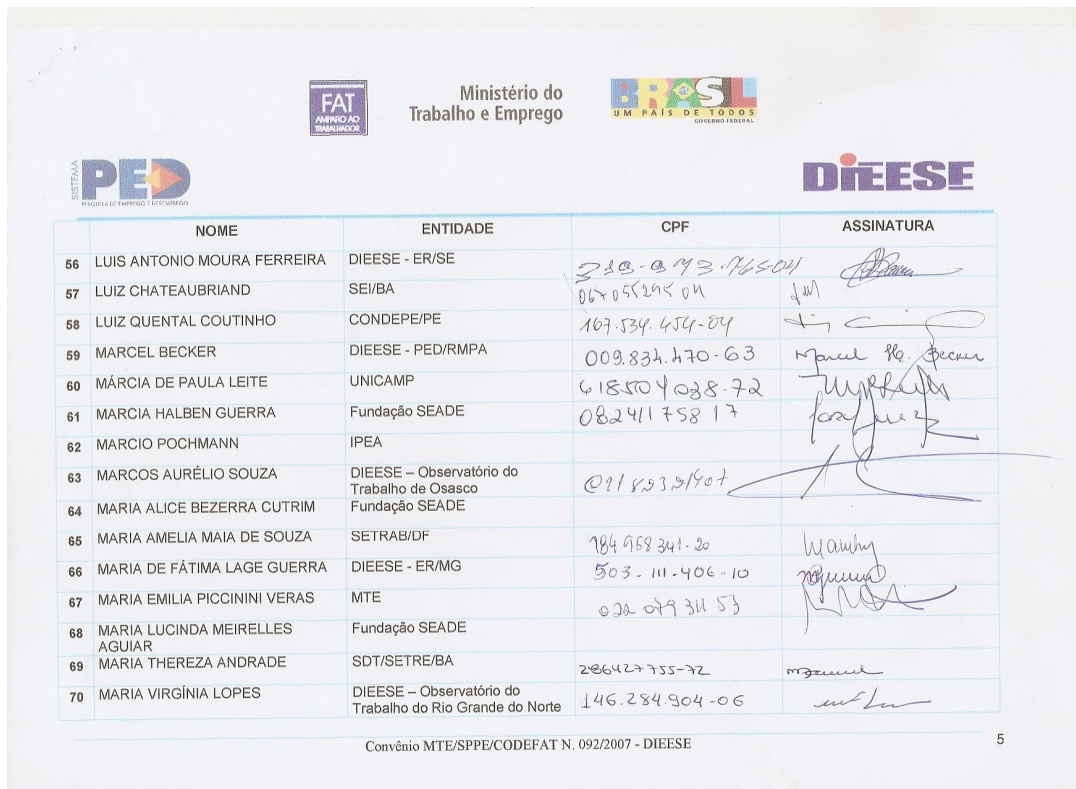 FAT
AMPARO AO
TRABALHADOR
Ministério do
Trabalho e Emprego
BRASIL
UM PAÍS DE TODOS
GOVERNO FEDERAL
SISTEMA
PED
PESQUISA DE EMPREGO E DESEMPREGO
DIEESE
NOME ENTIDADE CPF ASSINATURA
56 LUIS ANTONIO MOURA FERREIRA DIEESE - ER/SE
57 LUIZ CHATEAUBRIAND SEI/BA
58 LUIZ QUENTAL COUTINHO CONDEPE/PE 167.534.454-04
59 MARCEL BECKER DIEESE - PED/RMPA 009.834.470-63 Marcel Becker
60 MÁRCIA DE PAULA LEITE UNICAMP 618504038-72
61 MARCIA HALBEN GUERRA Fundação SEADE
62 MARCIO POCHMANN IPEA
63 MARCOS AURÉLIO SOUZA DIEESE – Observatório do
Trabalho de Osasco
64 MARIA ALICE BEZERRA CUTRIM Fundação SEADE
65 MARIA AMELIA MAIA DE SOUZA SETRAB/DF 184 968 341-20
66 MARIA DE FÁTIMA LAGE GUERRA DIEESE - ER/MG 503-111-406-10
67 MARIA EMILIA PICCININI VERAS MTE 022 079 311 53
68 MARIA LUCINDA MEIRELLES
AGUIAR Fundação SEADE
69 MARIA THEREZA ANDRADE SDT/SETRE/BA 286427755-72
70 MARIA VIRGÍNIA LOPES DIEESE – Observatório do
Trabalho do Rio Grande do Norte 146.284.904-06
Convênio MTE/SPPE/CODEFAT N. 092/2007 - DIEESE
5